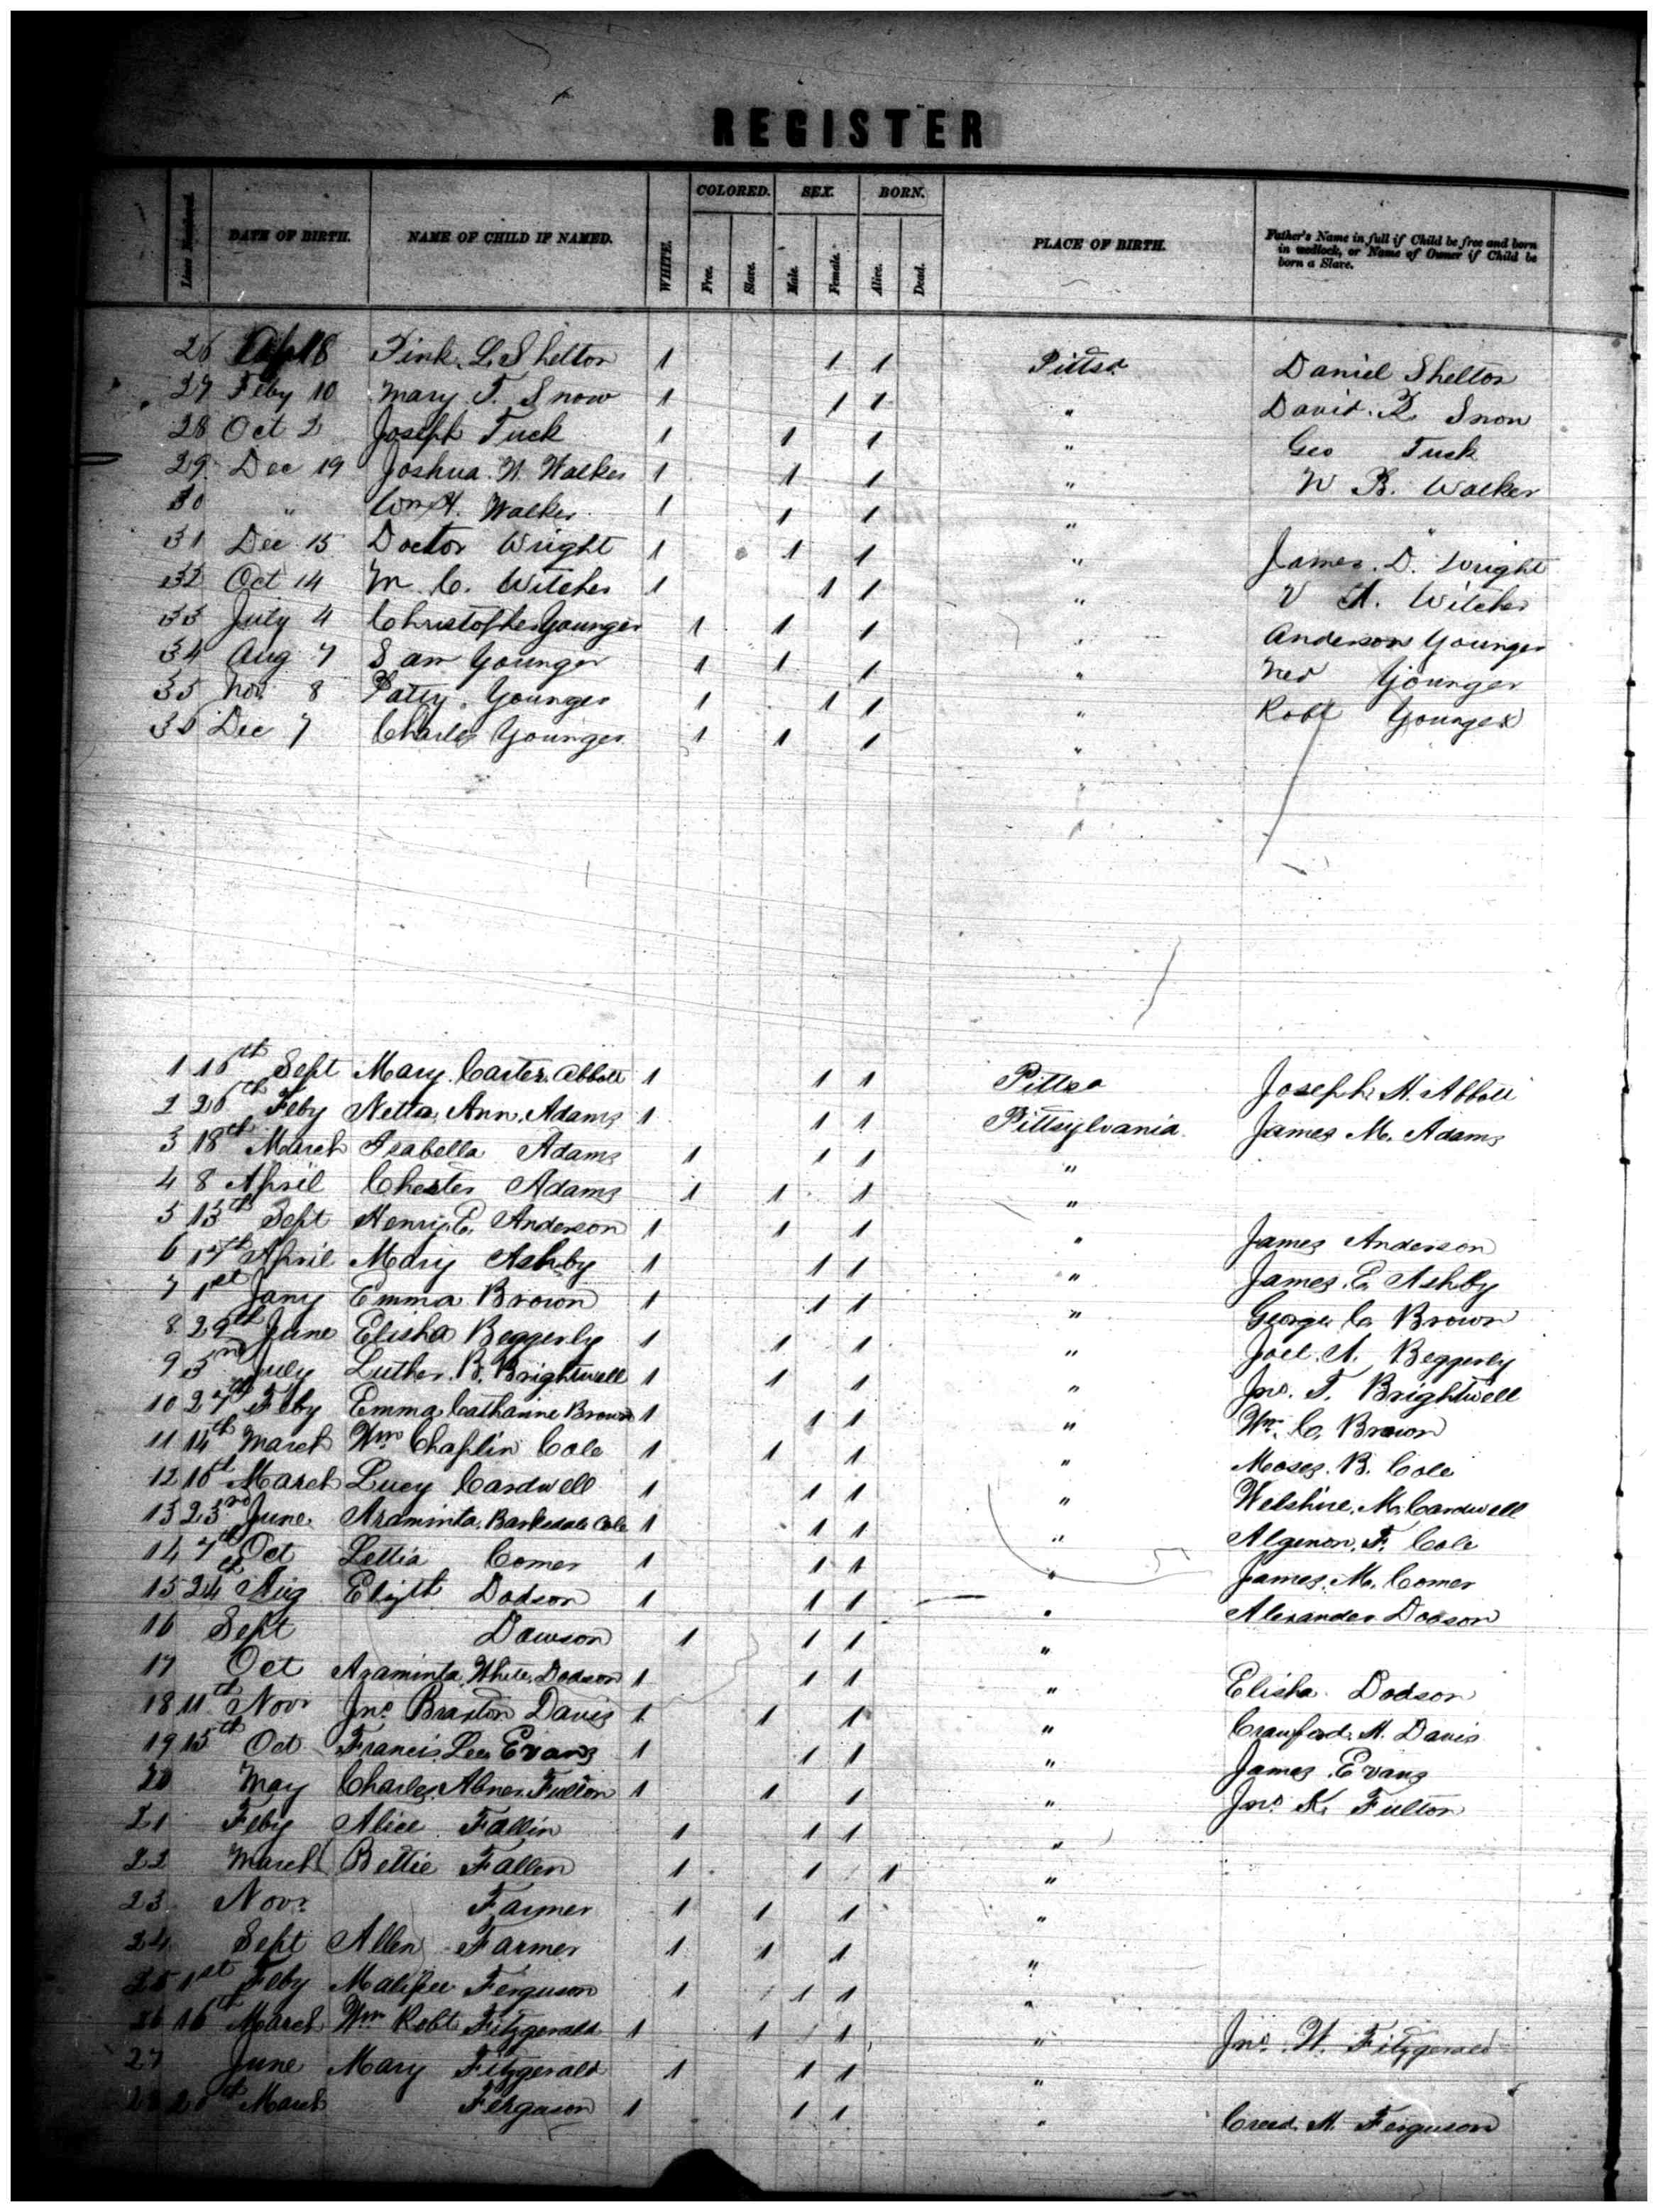 REGISTER
Lines Numbered. DATE OF BIRTH. NAME OF CHILD IF NAMED. WHITE. COLORED. Free. Slave. SEX. Male. Female. BORN. Alive. Dead. PLACE OF BIRTH. Father's Name in full if Child be free and born in wedlock, or Name of Owner if Child be born a Slave.
26 8 Pink L. Shelton 1 1 1 Pittsa Daniel Shelton
27 Feby 10 Mary T. Snow 1 1 1 " David Z Snow
28 Oct 2 Joseph Tuck 1 1 1 " Geo Tuck
29 Dec 19 Joshua W. Walker 1 1 1 " W B. Walker
30 " Wm H. Walker 1 1 1 " "
31 Dec 15 Doctor Wright 1 1 1 " James D. Wright
32 Oct 14 M C. Witcher 1 1 1 " V A. Witcher
33 July 4 Christopher Younger 1 1 1 " Anderson Younger
34 Aug 7 Sam Younger 1 1 1 " Ned Younger
35 Nov 8 Patty Younger 1 1 1 " Robt Younger
36 Dec 7 Charles Younger 1 1 1 "
1 16th Sept Mary Carter Abbott 1 1 1 Pittsa Joseph H. Abbott
2 26th Feby Netta Ann Adams 1 1 1 Pittsylvania James M. Adams
3 18th March Isabella Adams 1 1 1 "
4 8 April Chester Adams 1 1 1 "
5 15th Sept Henry E. Anderson 1 1 1 " James Anderson
6 17th April Mary Ashby 1 1 1 " James E. Ashby
7 1st Jany Emma Brown 1 1 1 " George C. Brown
8 29th June Elisha Beggerly 1 1 1 " Joel A. Beggerly
9 3rd July Luther B. Brightwell 1 1 1 " Jno. T. Brightwell
10 27th Feby Emma Catharine Brown 1 1 1 " Wm. C. Brown
11 14th March Wm Chaplin Cole 1 1 1 " Moses B. Cole
12 16th March Lucy Cardwell 1 1 1 " Welshire M. Cardwell
13 23rd June Araminta Barksdale Cole 1 1 1 " Algenon F. Cole
14 7th Oct Lettia Comer 1 1 1 " James M. Comer
15 24th Aug Elizth Dodson 1 1 1 " Alexander Dodson
16 Sept Dawson 1 1 1 "
17 Oct Araminta White Dodson 1 1 1 " Elisha Dodson
18 11th Novr Jno Braxton Davis 1 1 1 " Crawford H. Davis
19 15th Oct Francis Lee Evans 1 1 1 " James Evans
20 May Charles Abner Fulton 1 1 1 " Jno K. Fulton
21 Feby Alice Fallin 1 1 1 "
22 March Bettie Fallen 1 1 1 "
23 Novr Farmer 1 1 1 "
24 Sept Allen Farmer 1 1 1 "
25 1st Feby Ferguson 1 1 1 "
26 16th March Wm Robt Fitzgerald 1 1 1 " Jno W. Fitzgerald
27 June Mary Fitzgerald 1 1 1 "
28 20th March Ferguson 1 1 1 " Creed H. Ferguson